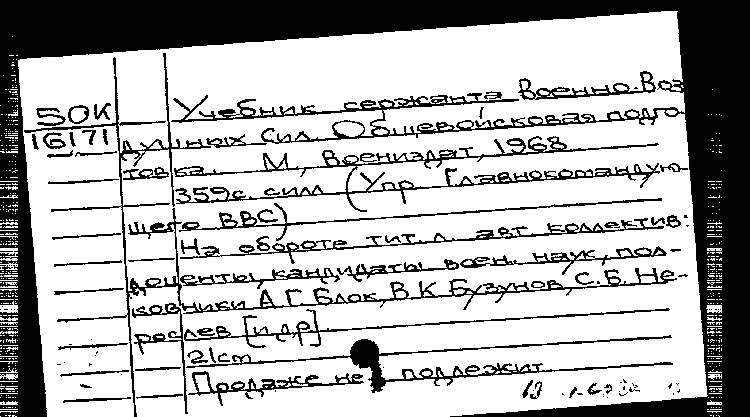 50К
16171
Учебник сержанта Военно-Воз
душных Сил. Общевойсковая подго
товка. М., Воениздат, 1968
359с. силл (Упр. Главнокомандую-
щего ВВС)
На обороте тит. л. авт. коллектив:
доценты, кандидаты воен. наук, пол-
ковники А.Г. Блок, В.К. Бузунов, С.Б. Не-
рослев [и др].
21cm
Продаже не подлежит